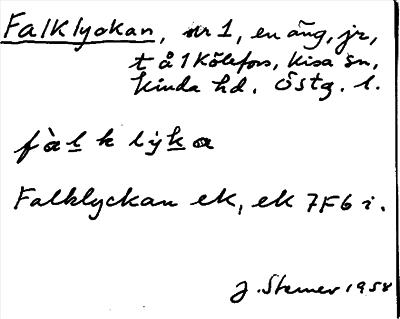 Falklyckan, nr 1, en äng, jr,
t å 1 Kölefors, Kisa sn,
Kinda hd. Östg. l.
fàl k lyk a
Falklyckan ek, ek 7F6 i.
J. Sterner 1958